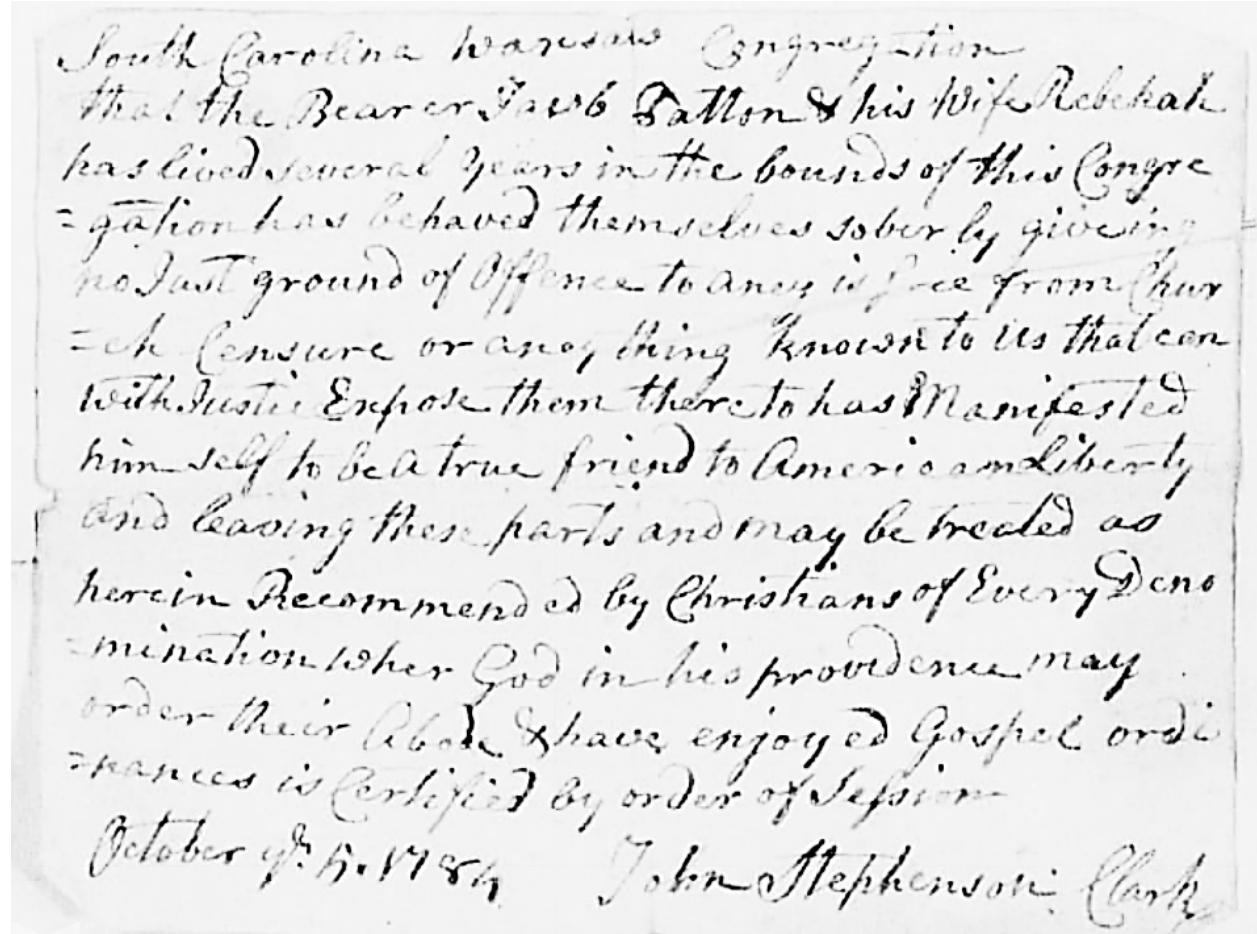 South Carolina Warsaw Congregation
that the Bearer Jacob Patton & his Wife Rebekah
has lived several years in the bounds of this Congre
=gation has behaved themselves sober by giveing
no Just ground of Offence to aney is free from Chur
=ch Censure or aney thing known to us that can
with Justic Expose them thereto has Manifested
him self to be a true friend to American Liberty
and leaving these parts and may be treated as
herein Recommended by Christians of Every Deno
=mination wher God in his providence may
order their Abode & have enjoyed Gospel ordi
=nances is Certified by order of Session
October ye 4. 1784 John Stephenson Clark